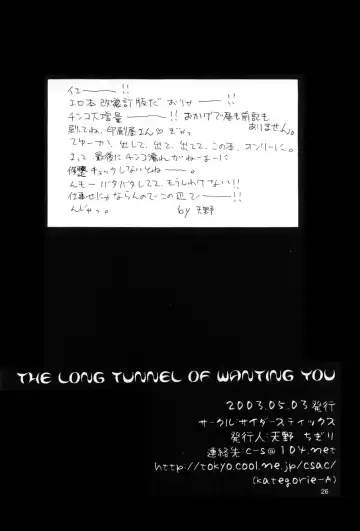 イエーーー!!
エロ本 改訂版だ おりゃーーー!!
チンコ大増量ーーー!! おかげで扉も前説も
ありません。
刷ってね、印刷屋さん♡ ぎゃっ
てゆーか、出して、出て、出てて、この本、オンリーに。
まって 最後に チンコ濡れがねーまーに
修整 チェックしないとねーー。
んもー バタバタしてて、もうしわけない!!
仕事せにゃならんので この辺でーーー!!
んじゃっ。 by 天野
THE LONG TUNNEL OF WANTING YOU
2003.05.03 発行
サークル:サイダースティックス
発行人:天野 ちぎり
連絡先:c-s@104.net
http://tokyo.cool.ne.jp/csac/
(kategorie-A)
26